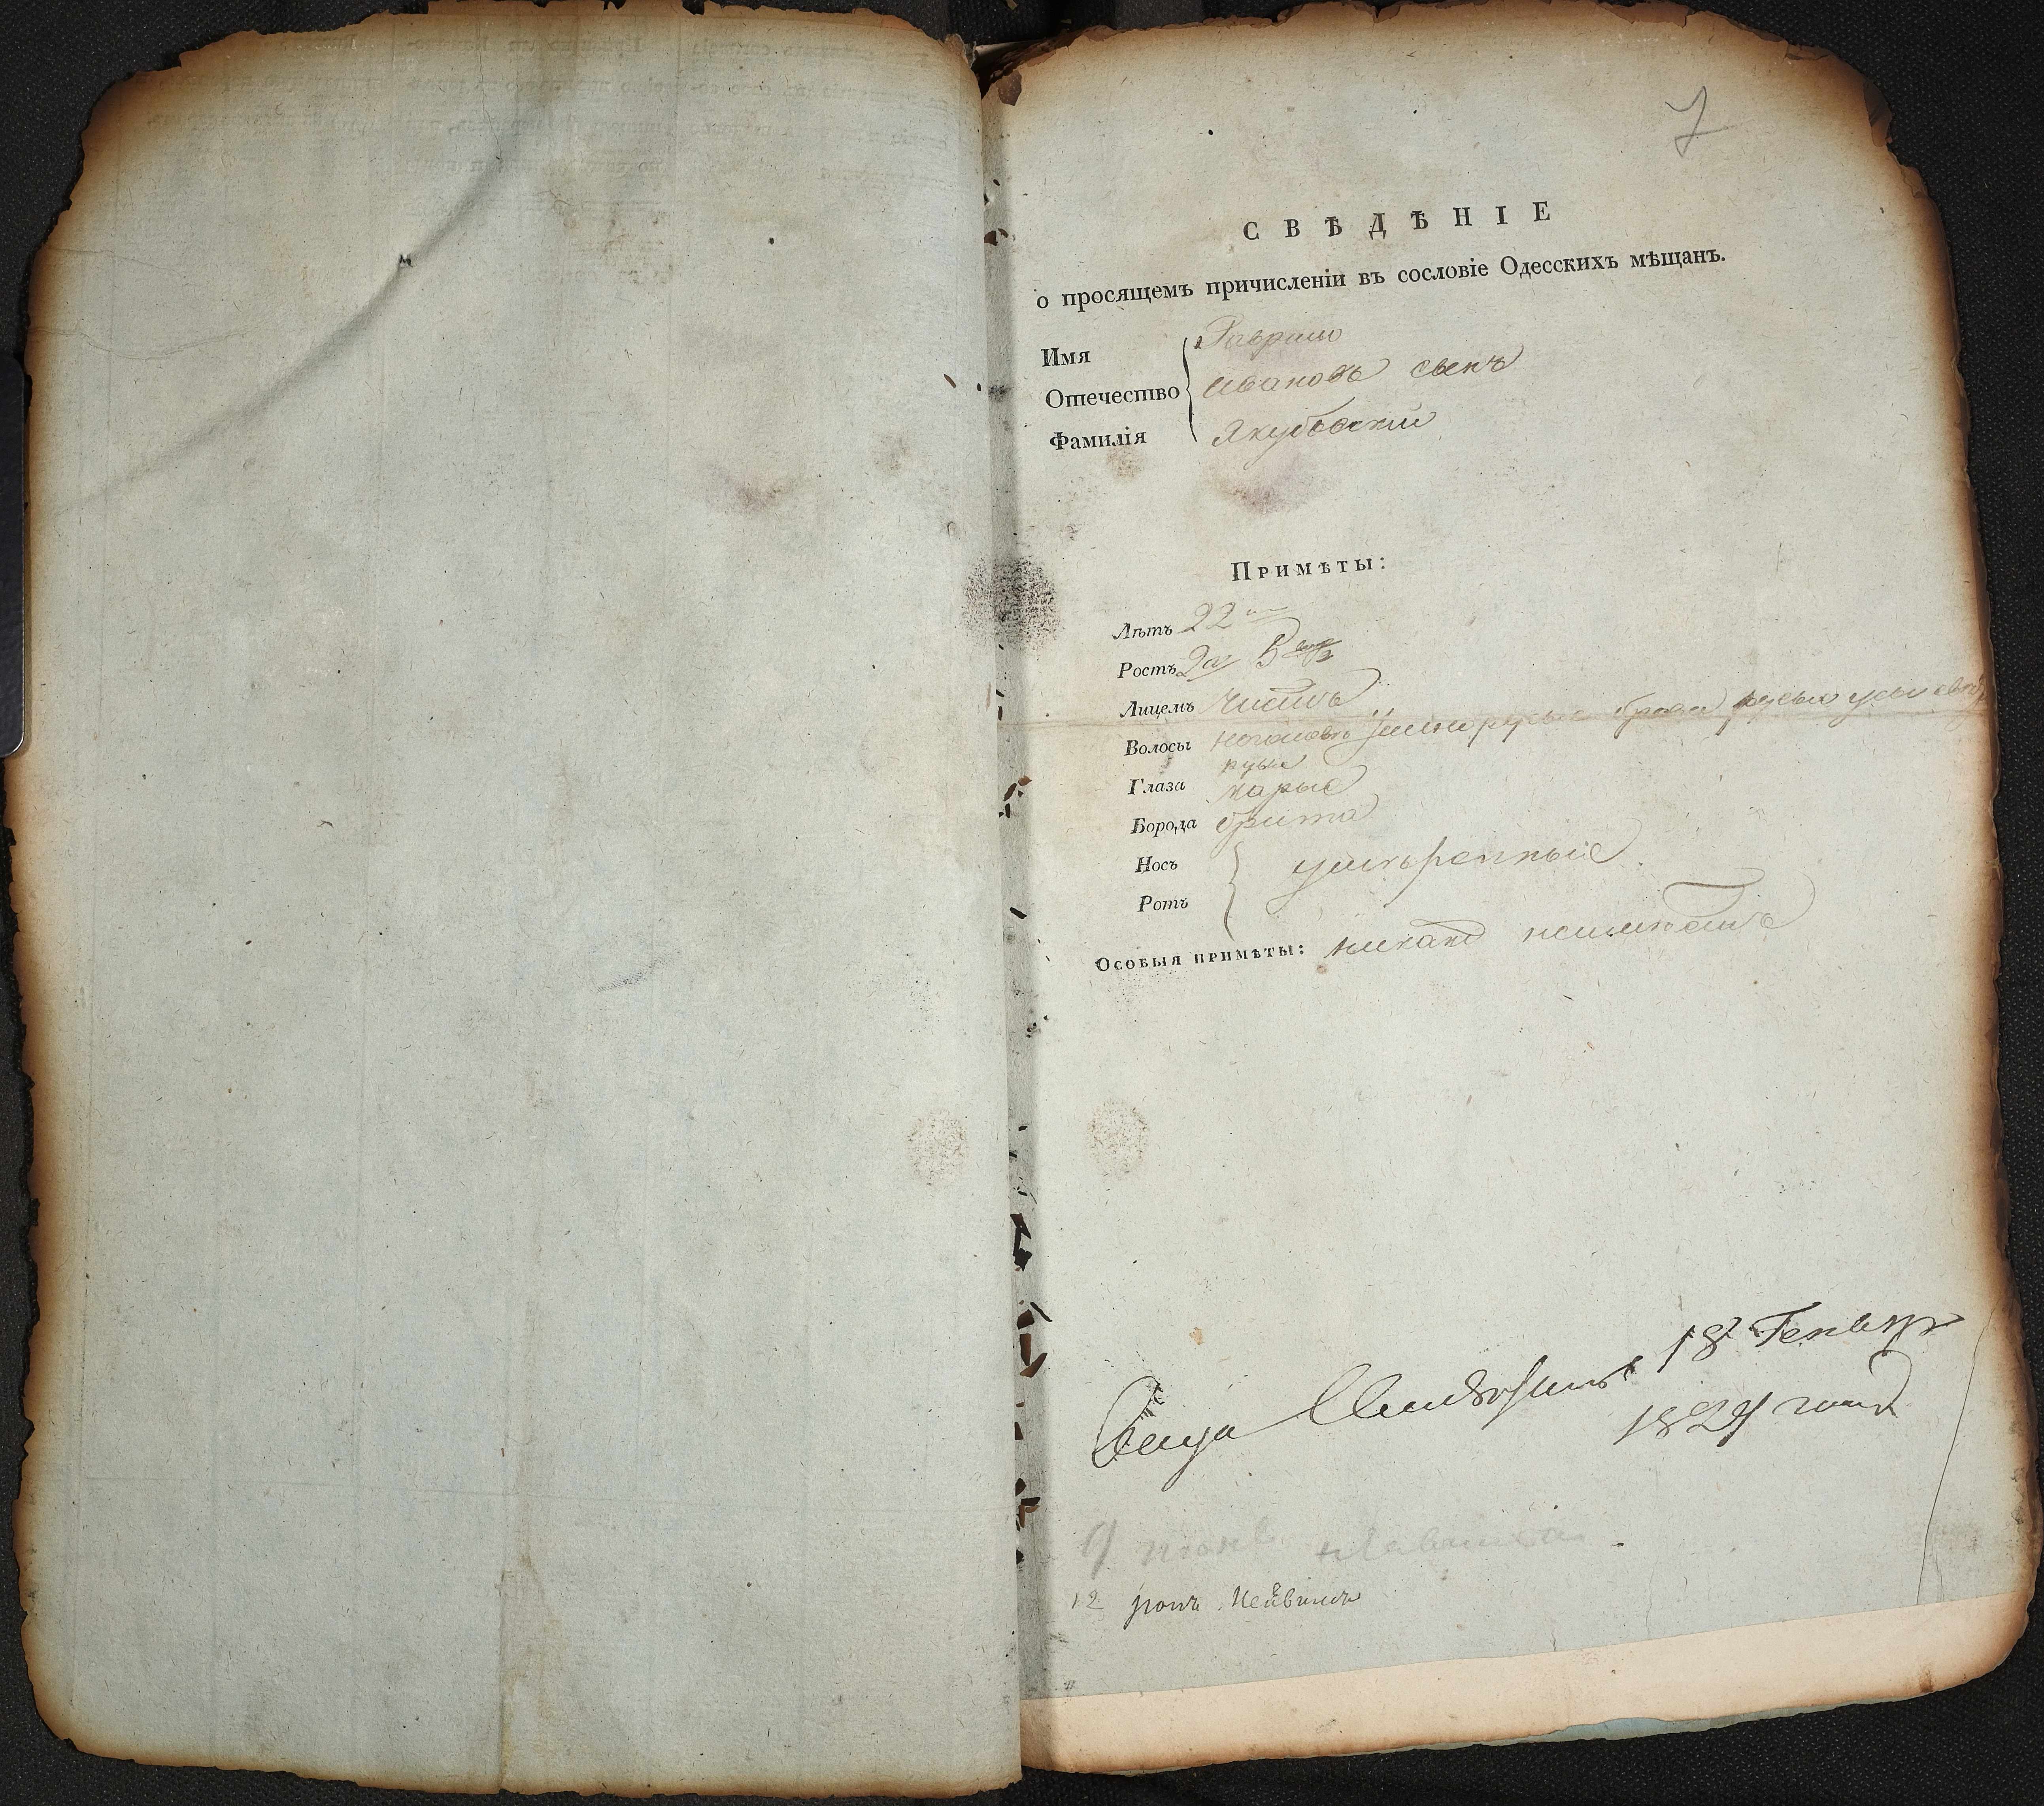 7
СВѢДѢНІЕ
о просящемъ причисленіи въ сословіе Одесскихъ мѣщанъ.
Имя Гаврило
Отечество Ивановъ сынъ
Фамилія Якубовскій
Примѣты:
Лѣтъ 22
Ростъ 2 ар 5 вер
Лицемъ чистъ
Волосы наголовѣ темнорусые брови русые усы
русые
Глаза карые
Борода брита
Носъ
Ротъ умѣренные
Особыя примѣты: никакъ неимѣетъ
18 Генвар
1829 года
12